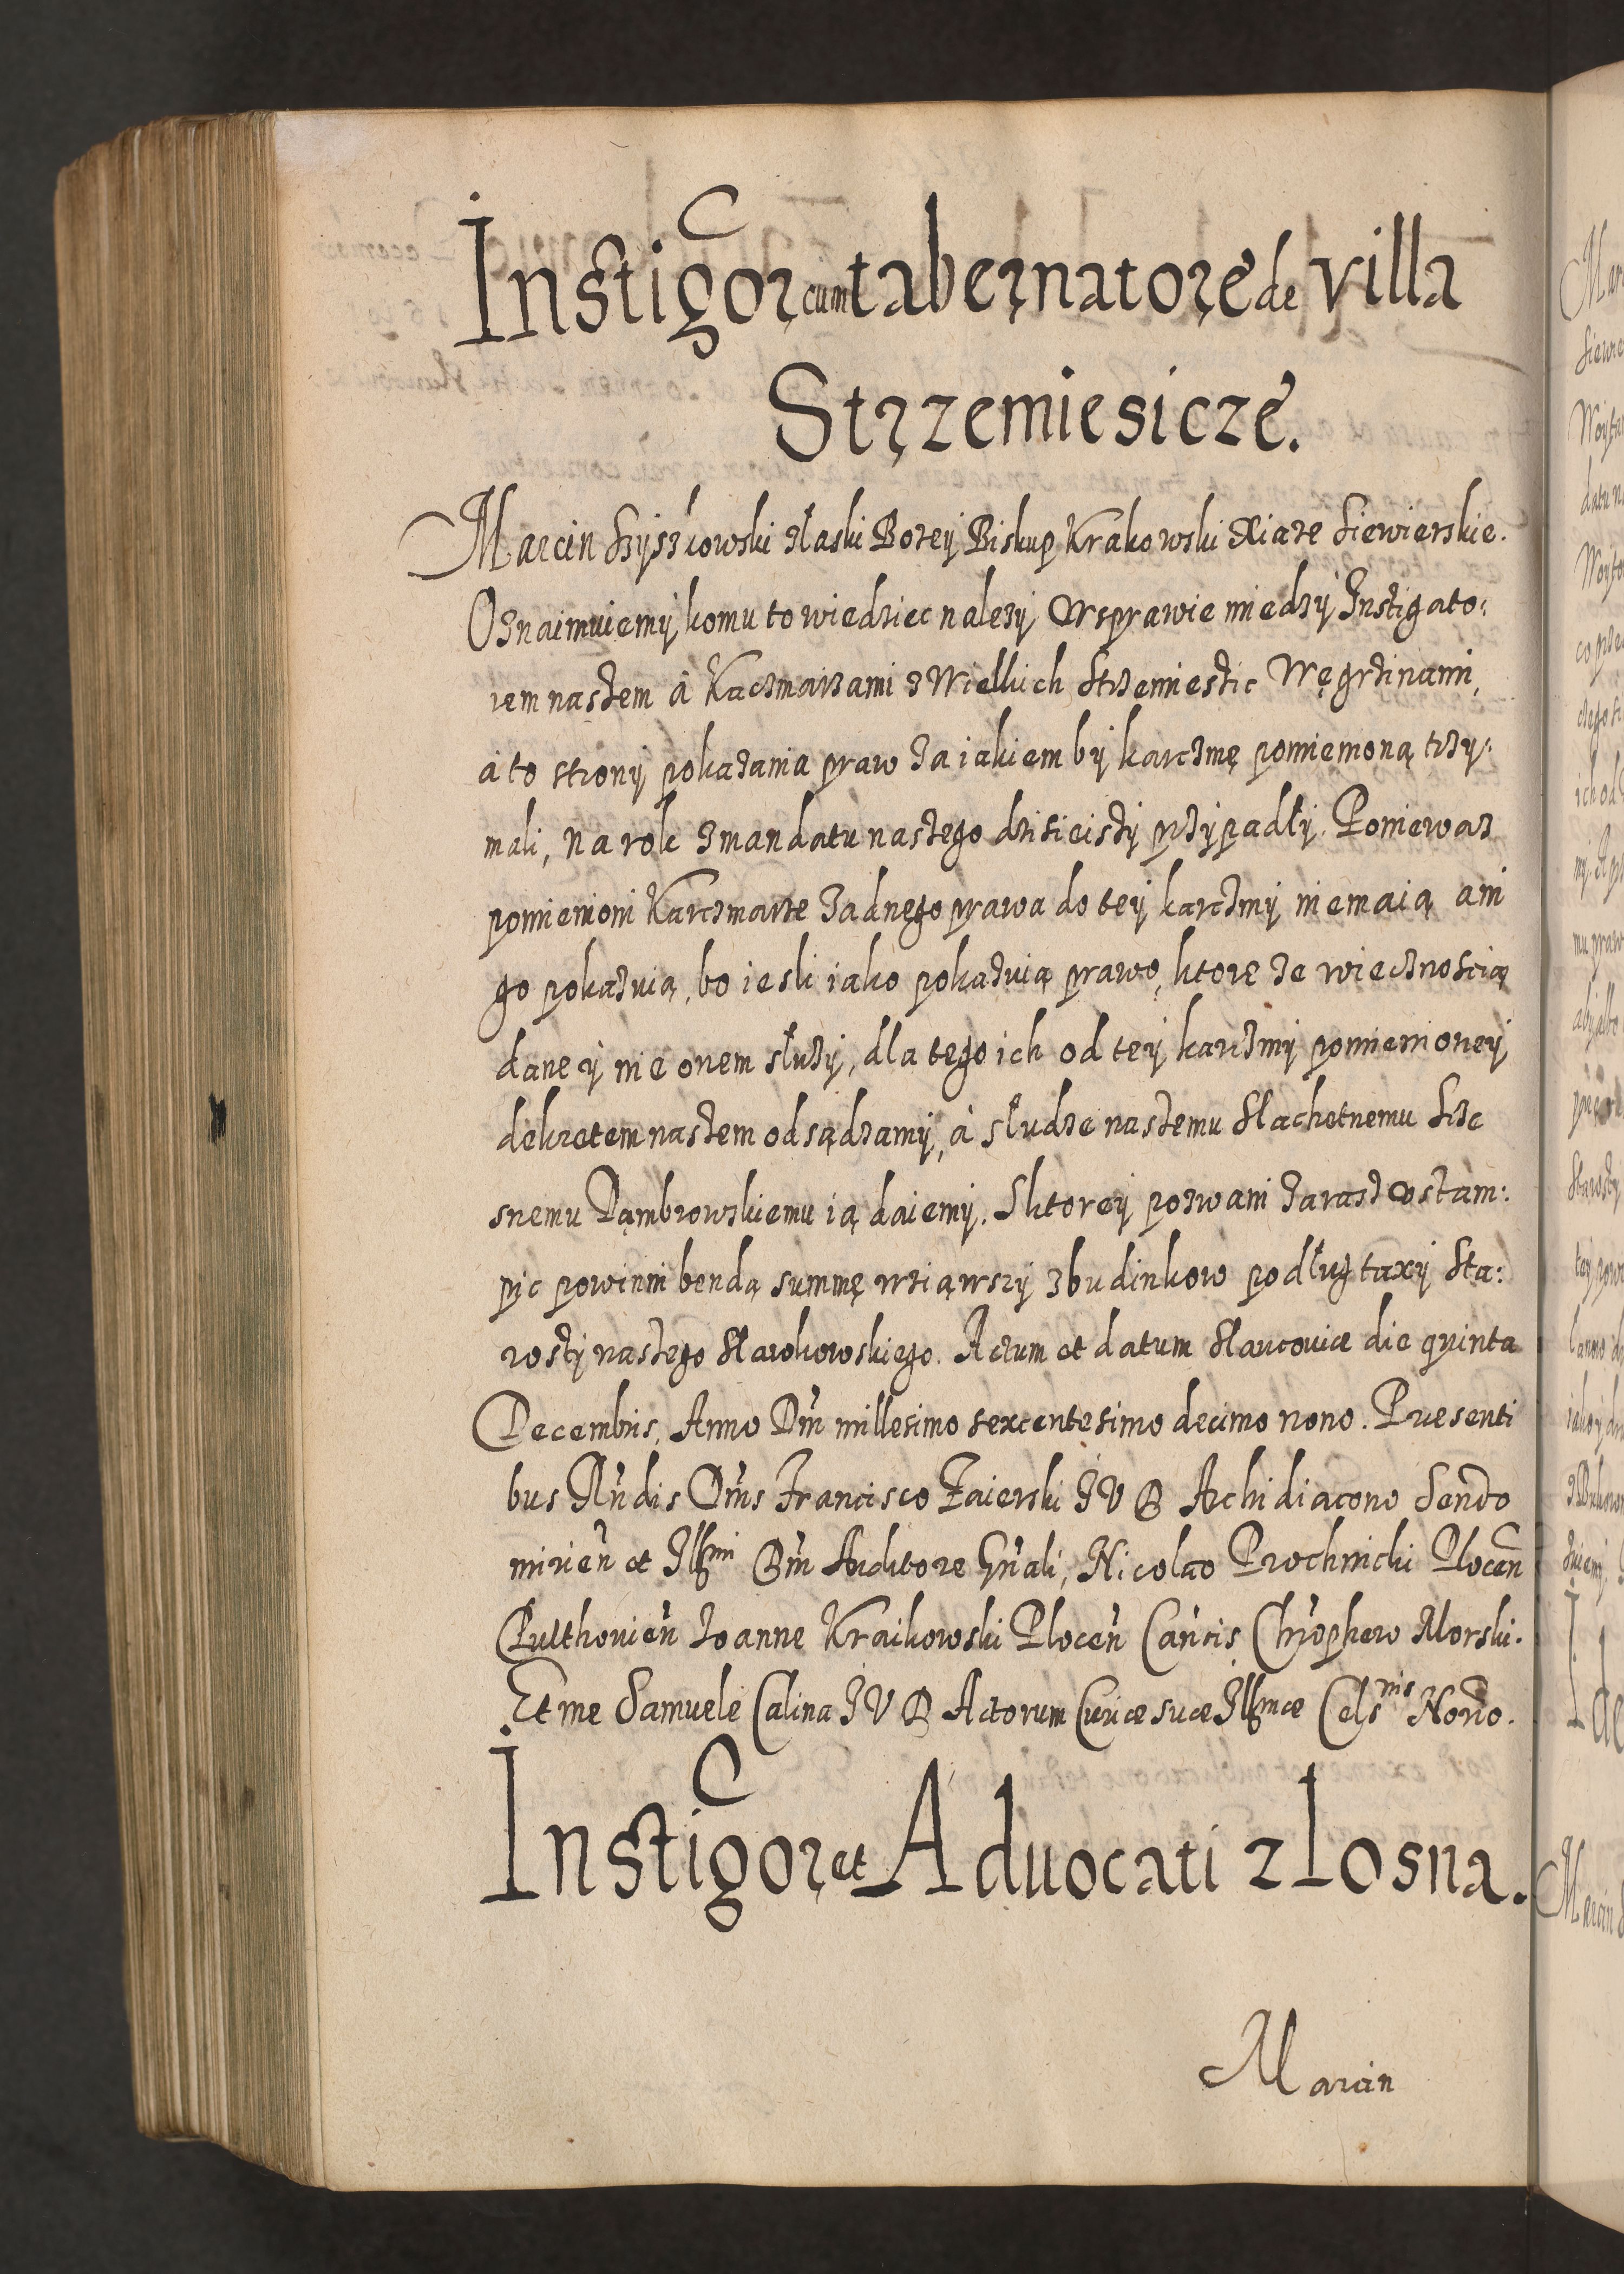 Instigor cum tabernatore de villa
Strzemiesicze.
Marcin Szyszkowski z łaski Bozey Biskup Krakowski Xiaze Siewierskie.
Oznaimuiemy komu to wiedziec nalezy W sprawie miedzy Instigato:
rem naszem á Kaczmarzami z Wielkich Strzemieszic Węgrzinami,
á to strony pokazania praw za iakiem by karczmę pomiemoną trzy:
mali, na rok z mandatu naszego dzisieiszy przypadły. Poniewaz
pomiemoni Karczmarze zadnego prawa do tey karczmy niemaią ani
go pokazuią, bo iesli iako pokazuią prawo, ktore ze wiecznoscią
dane y nie onem służy, dla tego ich od tey karczmy pomiemoney
dekretem naszem odsądzamy, á słudze naszemu Slachetnemu Szc
snemu Dąmbrowskiemu ią daiemy. S ktorey pozwani zarasz ostam:
pic powinni bendą summę wziąwszy z budinkow podług taxy Sta:
rosty naszego Slawkowskiego. Actum et datum Slaucoviæ die quinta
Decembris, Anno Dm̃ millesimo sexcentesimo decimo nono. Præsenti
bus Rñdis Dm̃s Francisco Zaierski I V D Archidiacono Sendo
mirieñ et Illmi Dm̃ Auditore Gñali, Nicolao Prochnicki Ploceñ
Pulthovieñ Ioanne Kraikowski Ploceñ Cañcis Chrỹophoro Morski.
Et me Samuele Calina I V D Actorum Curiæ suæ Illmæ Cels nis Norio.
Instigor et Aduocati z Losna.
Marcin